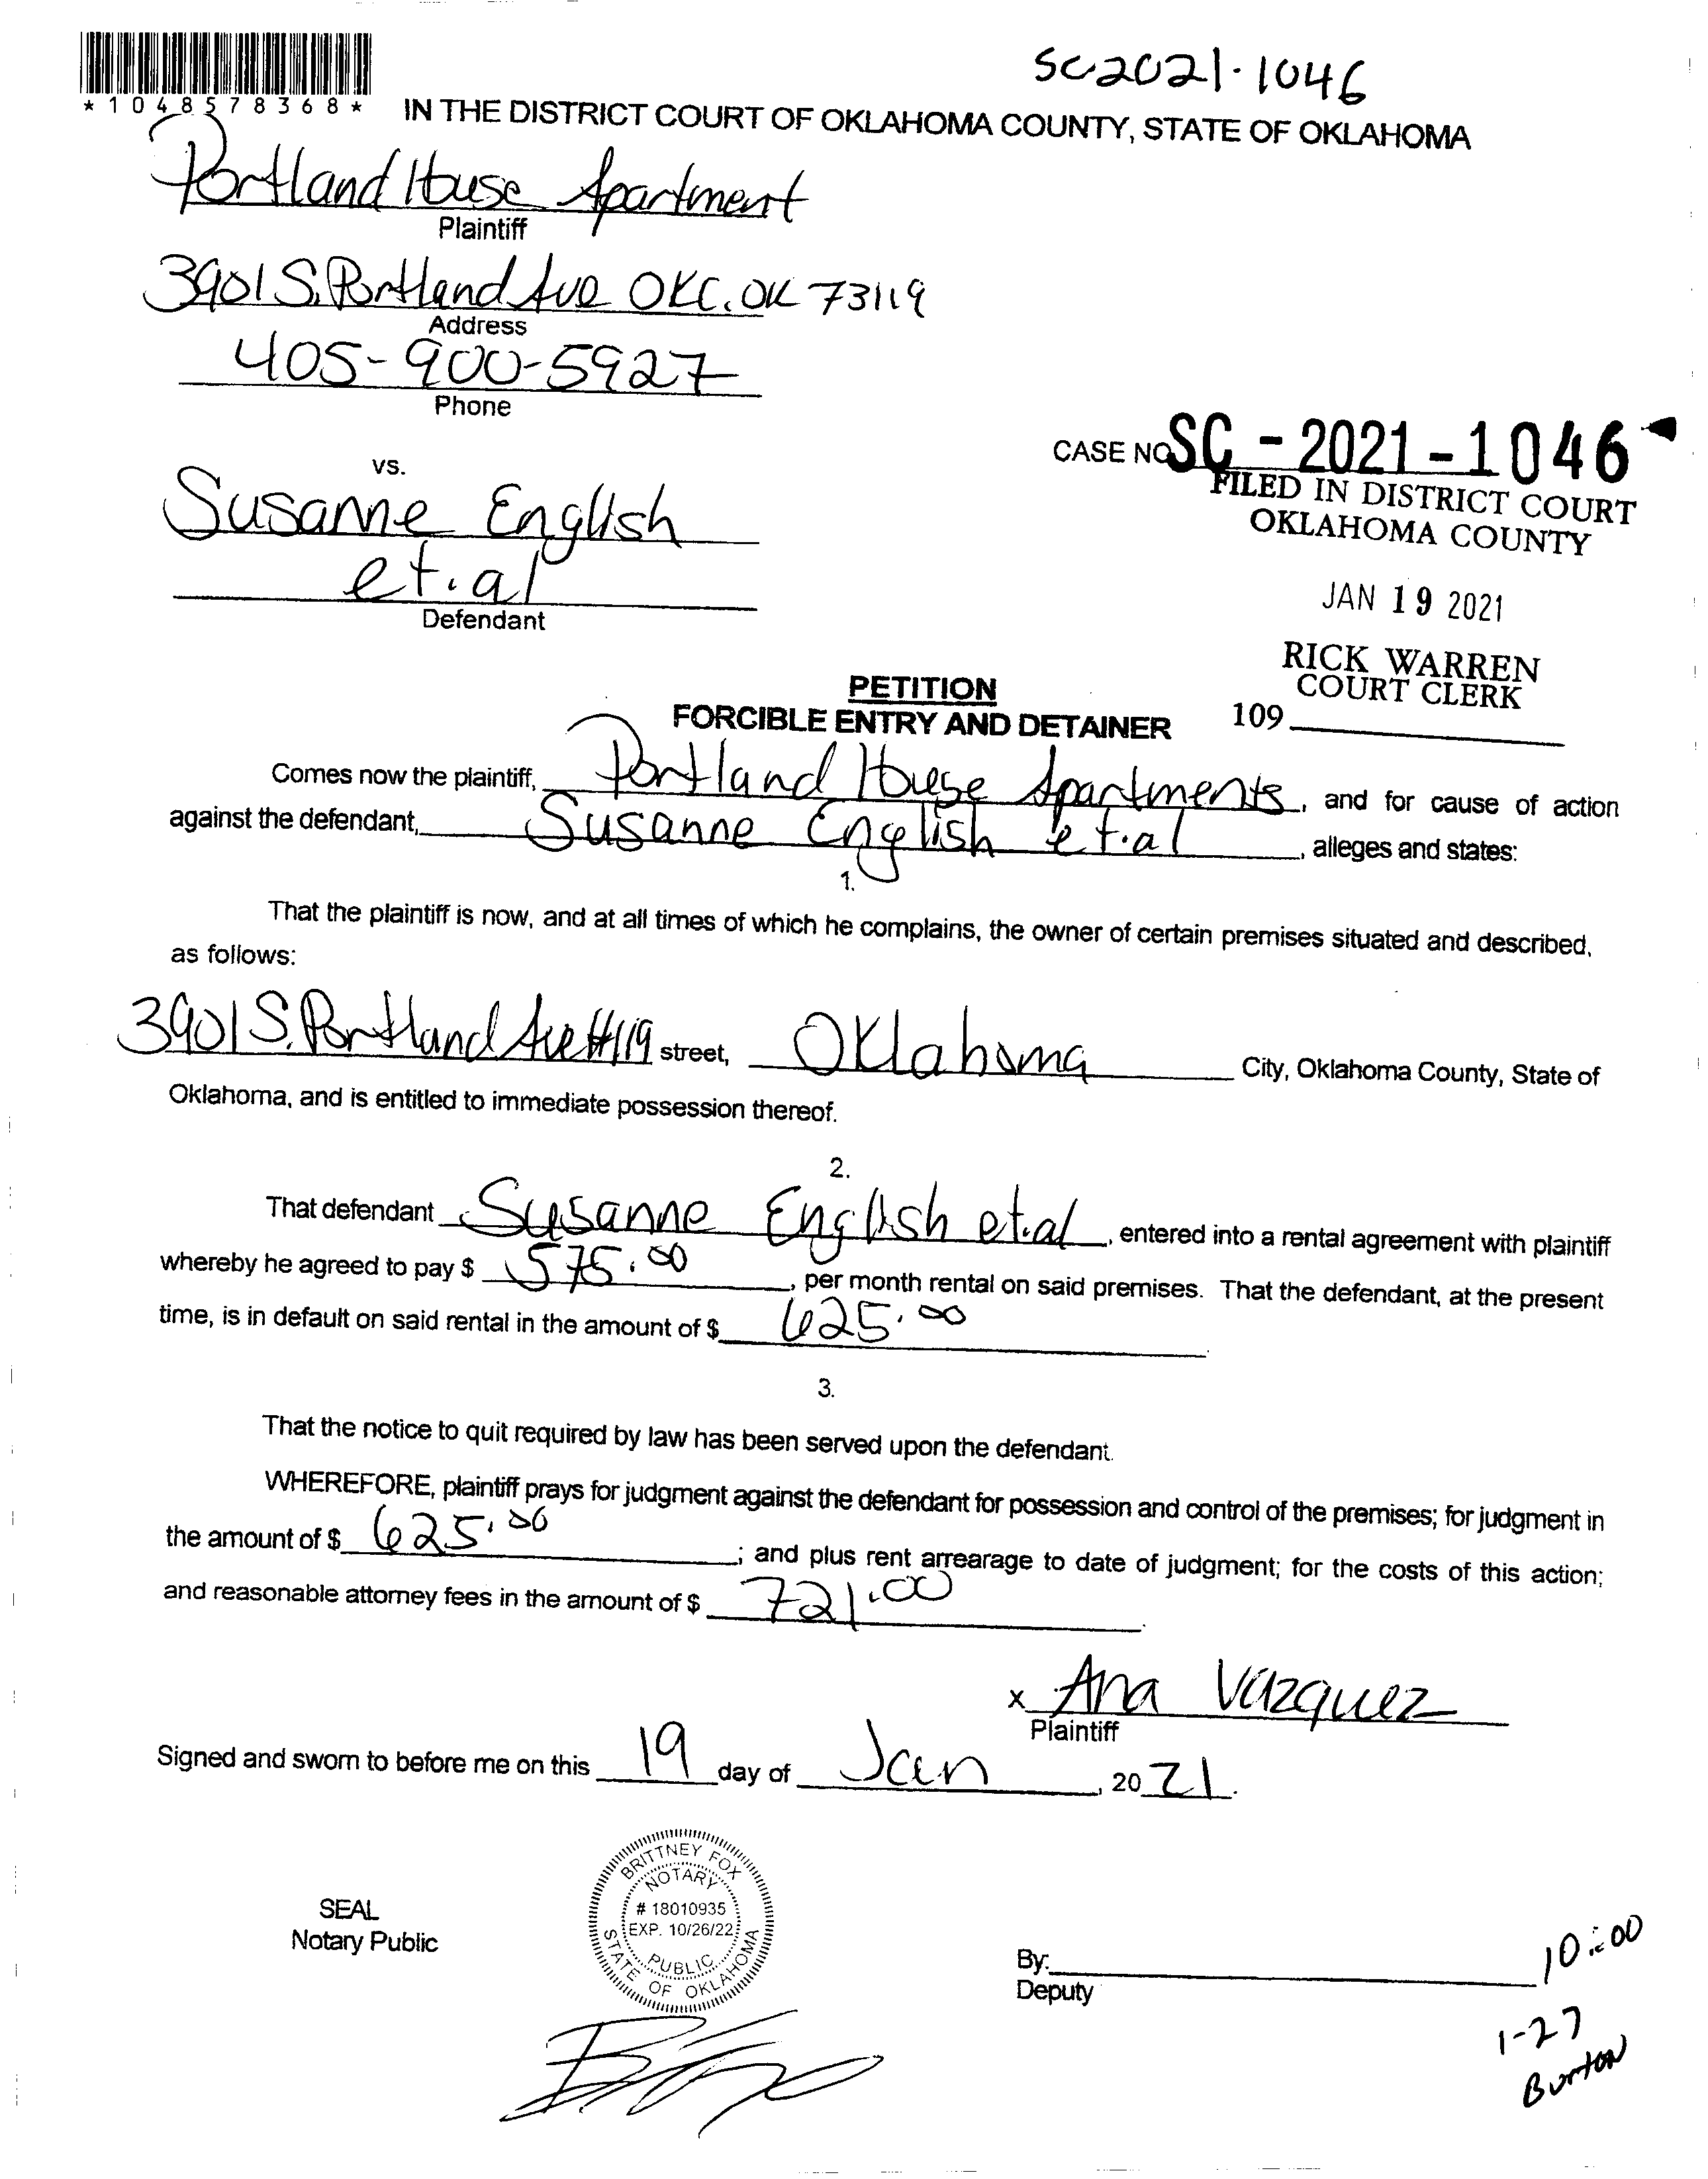 SC2021-1046
*1048578368*
IN THE DISTRICT COURT OF OKLAHOMA COUNTY, STATE OF OKLAHOMA
Portland House Apartment
Plaintiff
3901 S. Portland Ave OKC. OK 73119
Address
405-900-5927
Phone
CASE NO SC - 2021 - 1046
vs.
FILED IN DISTRICT COURT
OKLAHOMA COUNTY
Susanne English
et.al
Defendant
JAN 19 2021
RICK WARREN
COURT CLERK
109
PETITION
FORCIBLE ENTRY AND DETAINER
Comes now the plaintiff, Portland House Apartments, and for cause of action
against the defendant, Susanne English et.al, alleges and states:
1.
That the plaintiff is now, and at all times of which he complains, the owner of certain premises situated and described,
as follows:
3901 S. Portland Ave #119 street, Oklahoma City, Oklahoma County, State of
Oklahoma, and is entitled to immediate possession thereof.
2.
That defendant Susanne English et.al, entered into a rental agreement with plaintiff
whereby he agreed to pay $ 575.00, per month rental on said premises. That the defendant, at the present
time, is in default on said rental in the amount of $ 625.00.
3.
That the notice to quit required by law has been served upon the defendant.
WHEREFORE, plaintiff prays for judgment against the defendant for possession and control of the premises; for judgment in
the amount of $ 625.00; and plus rent arrearage to date of judgment; for the costs of this action;
and reasonable attorney fees in the amount of $ 721.00.
x Ana Vazquez
Plaintiff
Signed and sworn to before me on this 19 day of Jan, 2021.
BRITTNEY FOX
NOTARY
# 18010935
EXP. 10/26/22
PUBLIC
STATE OF OKLAHOMA
SEAL
Notary Public
By:
Deputy
10:00
1-27
Burton